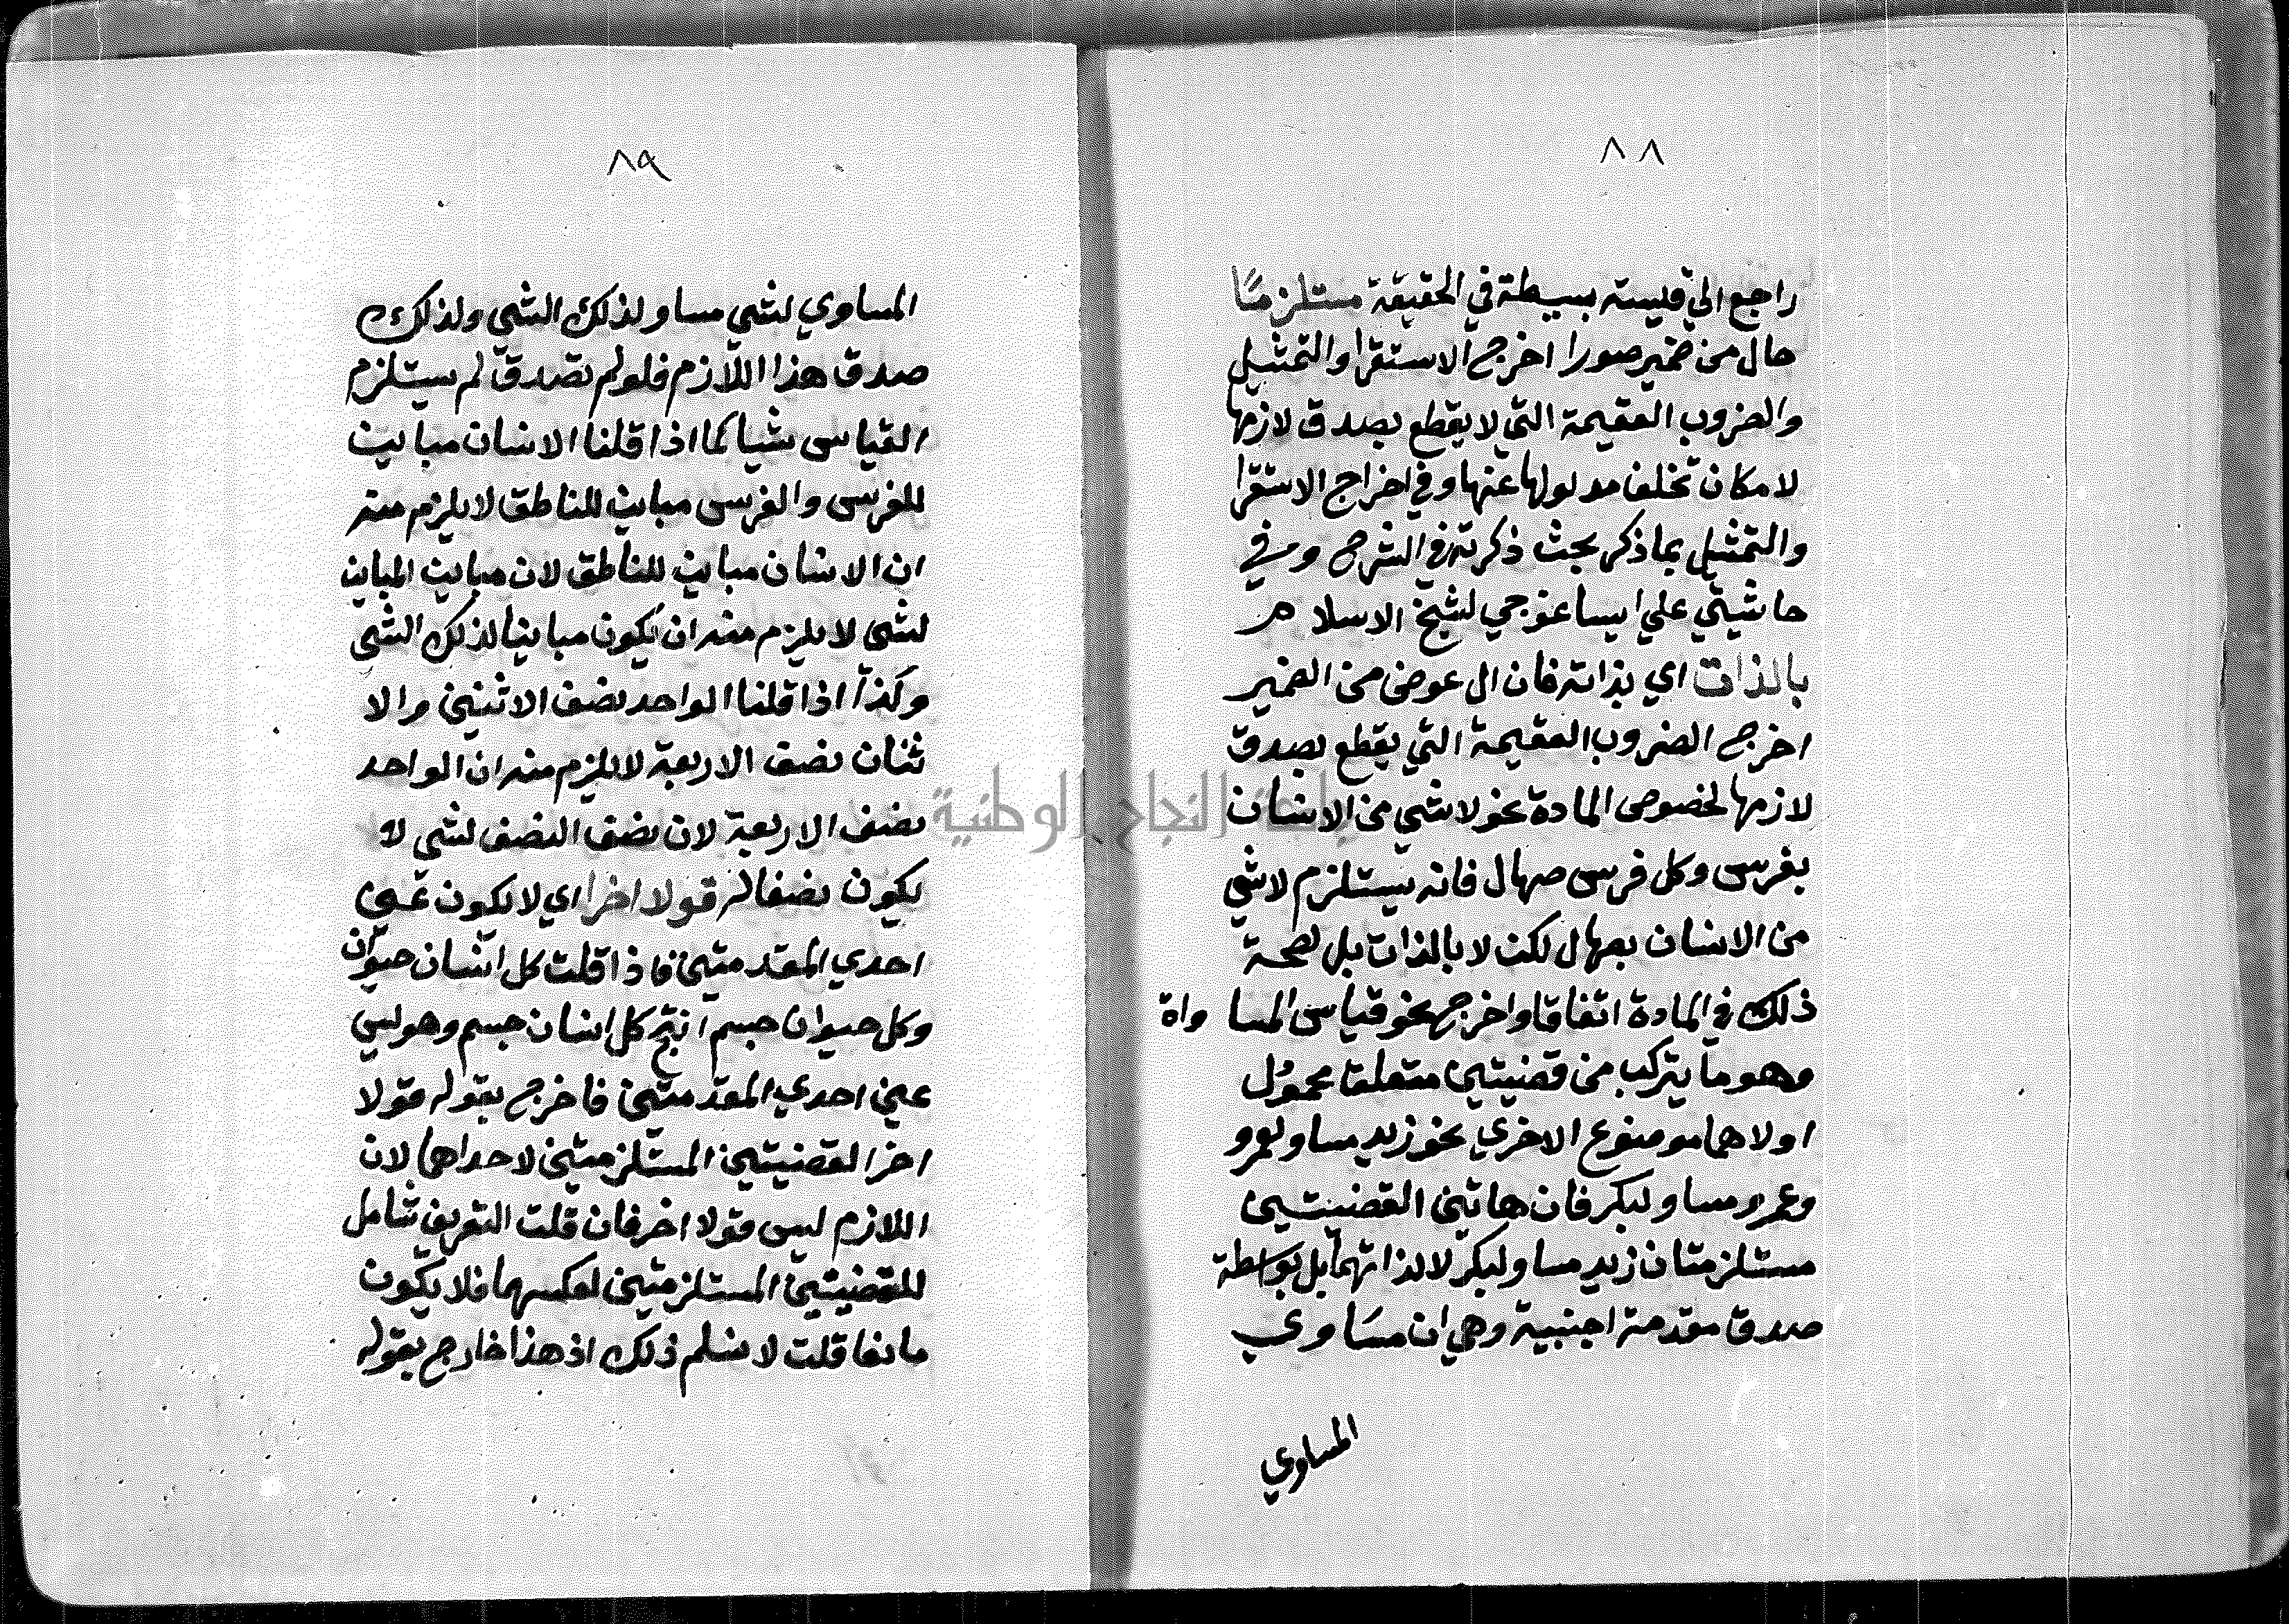 ٨٨
راجع الي قيسته بسيطة في الحقيقة مستلزمًا
حال من ضمير صورا اخرج الاستقرا والتمثيل
والضروب العقيمة التي لا يقطع بصدق لازمها
لامكان تخلف مدلولها عنها وفي اخراج الاستقرا
والتمثيل بما ذكر بحث ذكرته في الشرح وفي
حاشيتي علي ايساغوجي لشيخ الاسلام
بالذات اي بذاته فان ال عوض من الضمير
اخرج الضروب العقيمة التي يقطع بصدق
لازمها لخصوص المادة نحو لا شي من الانسان
بفرس وكل فرس صهال فانه يستلزم لا شي
من الانسان بصهال لكن لا بالذات بل لصحة
ذلك في المادة اتفاقا واخرج نحو قياس المساواة
وهو ما يتركب من قضيتين متعلق محمول
اولاهما موضوع الاخري نحو زيد مساو لعمرو
وعمرو مساو لبكر فان هاتين القضيتين
مستلزمتان زيد مساو لبكر لا لذاتهما بل بواسطة
صدق مقدمة اجنبية وهي ان مساوي
المساوي
٨٩
المساوي لشي مساو لذلك الشي ولذلك
صدق هذا اللازم فلو لم تصدق لم يستلزم
القياس شيا كما اذا قلنا الانسان مباين
للفرس والفرس مباين للناطق لا يلزم منه
ان الانسان مباين للناطق لان مباين المباين
لشي لا يلزم منه ان يكون مباينا لذلك الشي
وكذا اذا قلنا الواحد نصف الاثنين والا
ثنان نصف الاربعة لا يلزم منه ان الواحد
نصف الاربعة لان نصف النصف لشي لا
يكون نصفا له قولا اخرا اي لا يكون عين
احدي المقدمتين فاذا قلت كل انسان حيوان
وكل حيوان جسم انتج كل انسان جسم وهو ليس
عين احدي المقدمتين فاخرج بقوله قولا
اخر القضيتين المستلزمتين لاحداهما لان
اللازم ليس قولا اخر فان قلت التعريف شامل
للقضيتين المستلزمتين لعكسهما فلا يكون
مانعا قلت لا نسلم ذلك اذ هذا خارج بقوله
جامعة النجاح الوطنية